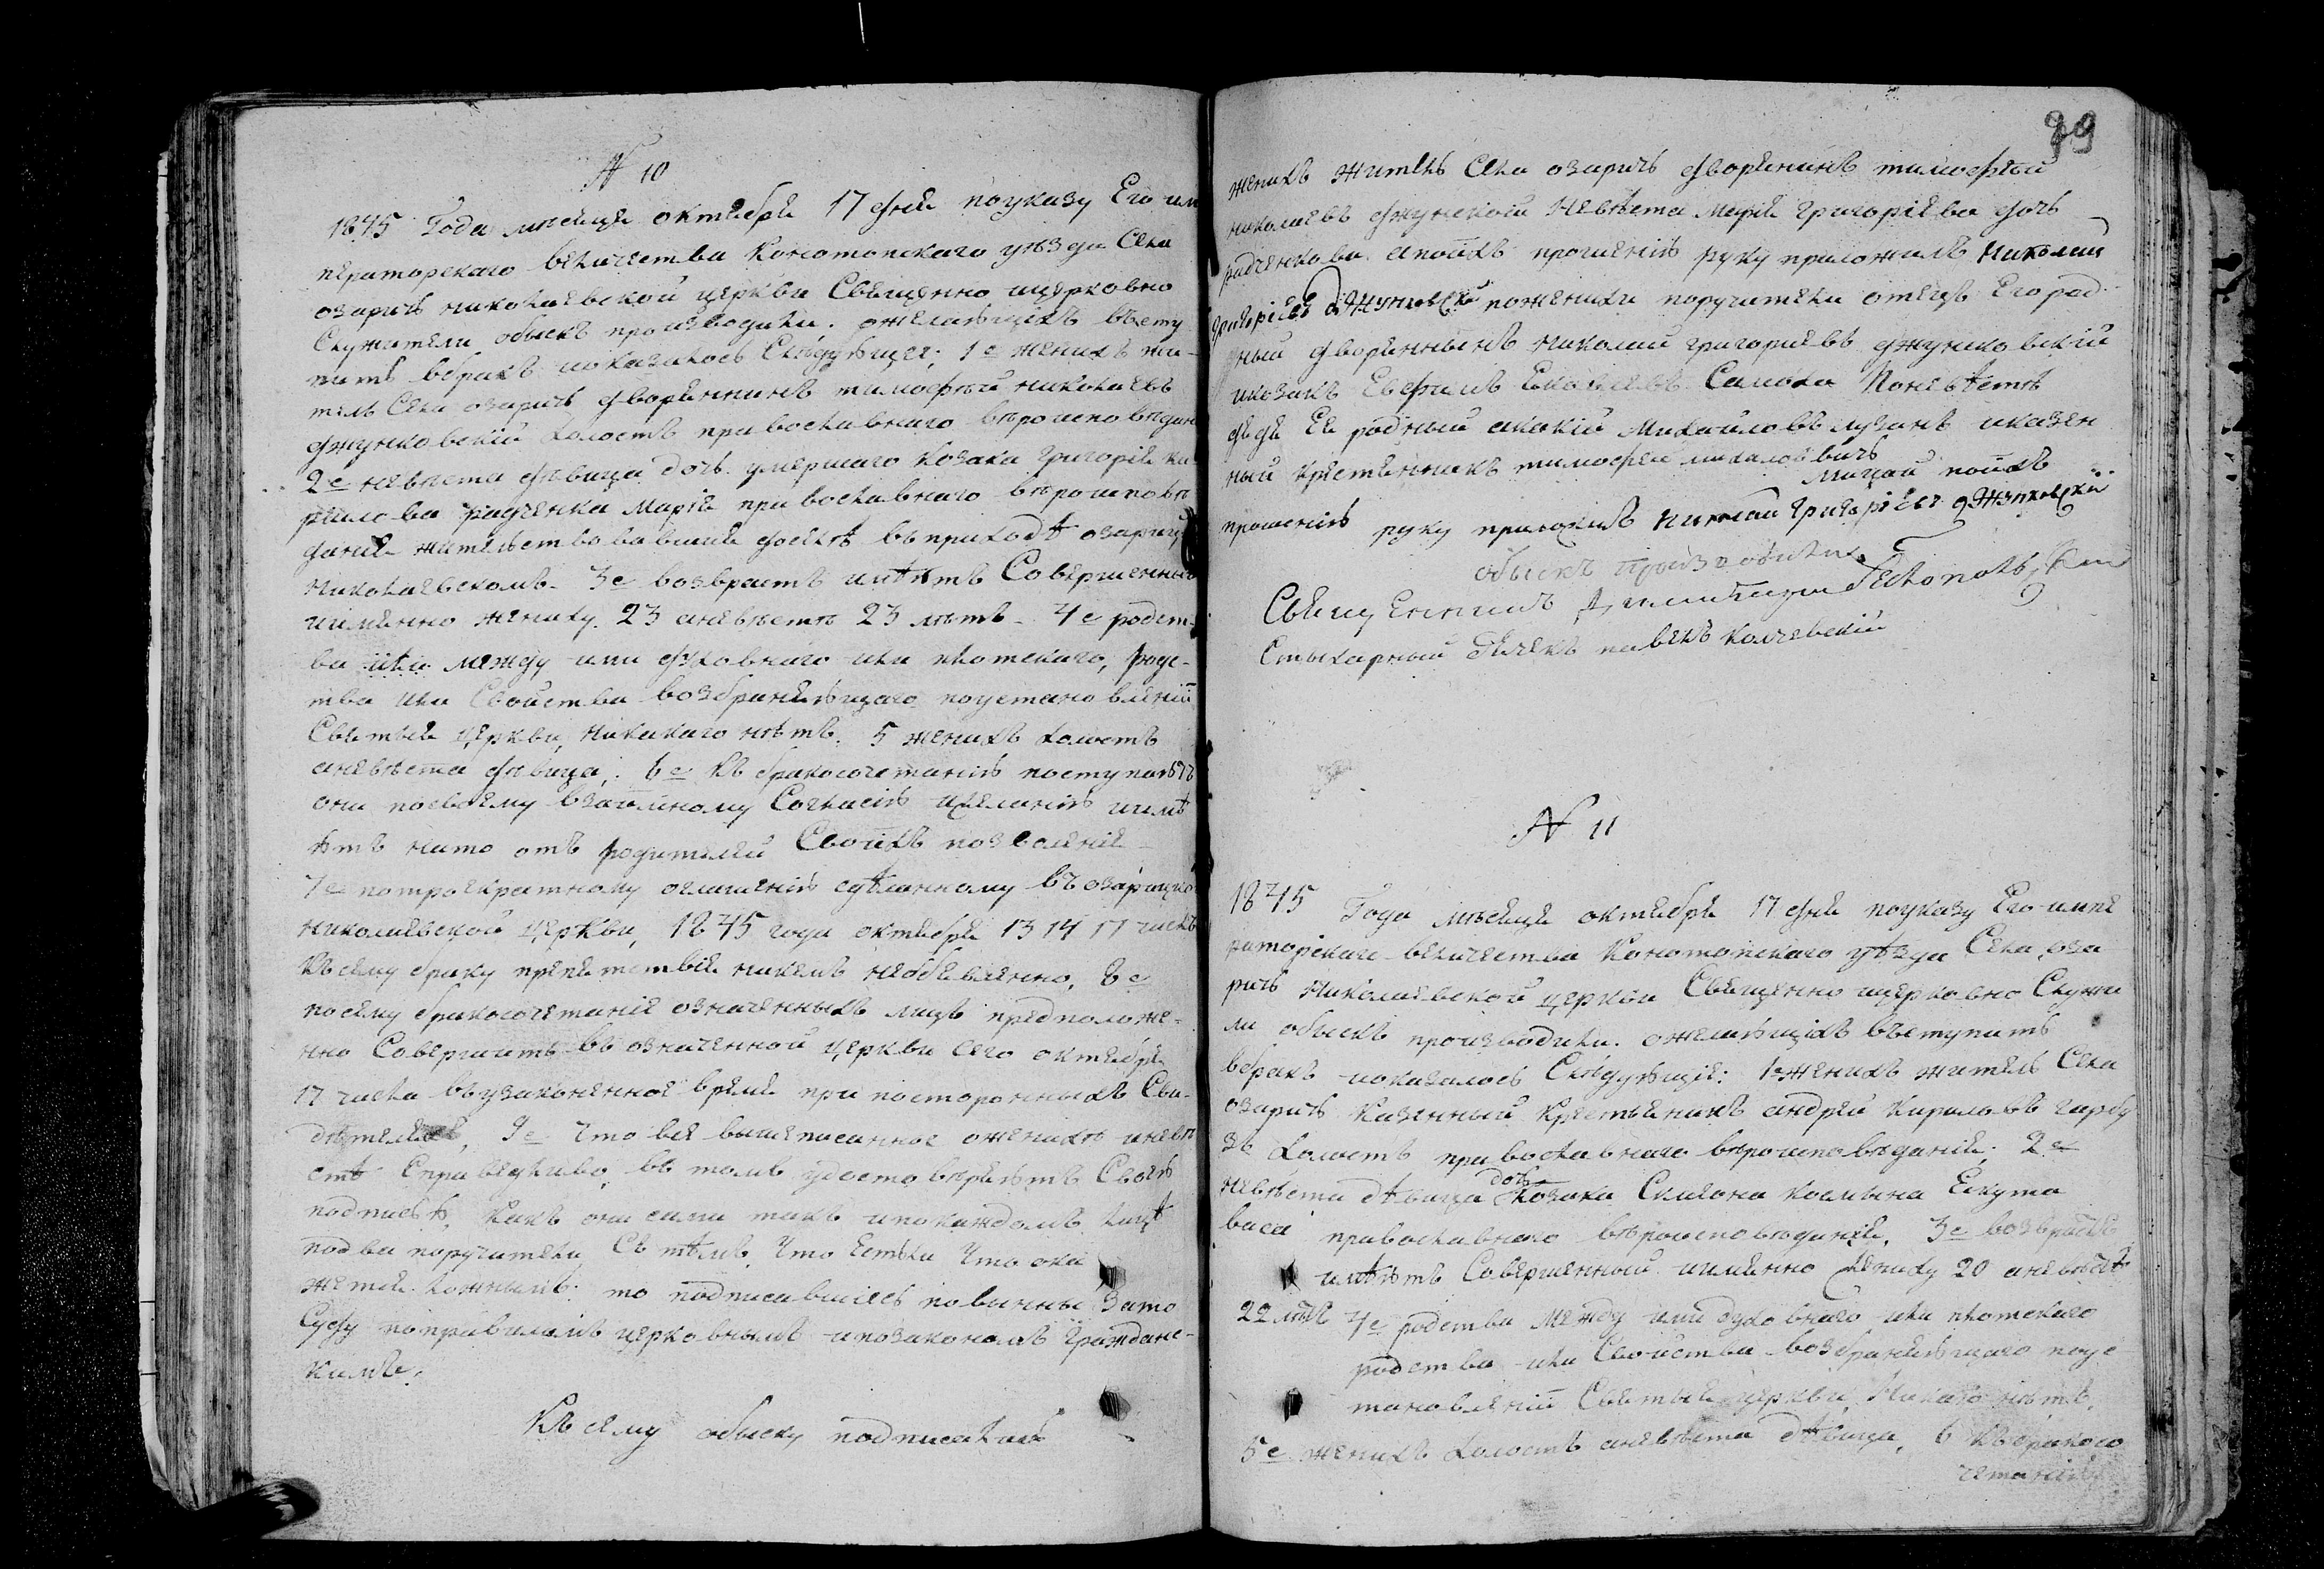 N 10
1845 Года мѣсяця октября 17 дня поуказу Его им
ператорскаго величества Конотопскаго уѣзда Села
озаричъ николаевской церкви Священно ицерковно
Служители обыскъ производили. ожелающихъ всту
пить вбракъ иоказалось Слѣдующее; 1е женихъ жи-
тель Села озаричъ дворяннинъ тимофѣй николаевъ
джунковскій холостъ православнаго вѣроисповѣдан
2е невѣста дѣвица дочь умершаго козака григорія ки
рилова радченка Марія православнаго вѣроисповѣ
данія жительствовавшия доселѣ въприходѣ озариц
николаевскомъ. 3е возврастъ имѣютъ Совершенный
иименно жениху 23 аневѣстѣ 23 лѣтъ. 4е родст-
ва или между ими духовнаго или плотскаго, родс-
тва или Свойства возбраняющаго поустановленію
Святыя церкви, никакаго нѣтъ. 5 женихъ холостъ
аневѣста дѣвица, 6е Къ бракосочетанію поступаютъ
они посвоему взаимному Согласію ижеланію иимѣ
ютъ нато отъ родителей Своихъ позволеніе
7е потроекратному оглашенію сдѣланному въ озарицко
николаевской церкви, 1845 года октября 13 14 17 числъ
Къ сему браку препятствія никемъ необявленно, 8е
посему бракосочетаніе означенныхъ лицъ предположе-
нно Совершить въ означенной церкви сего октября
17 числа въузаконенное время при постороннныхъ Сви-
дѣтеляхъ, 9е Что все вышеписанное оженихѣ иневѣ
стѣ Справедливо, въ томъ удостовѣряютъ Своею
подписью, Какъ они сами такъ ипокаждомъ лицѣ
подва поручителя Съ тѣмъ, Что Естьли Что ока
жется ложнымъ: то подписавшіесь повинны Зато
Суду поправиламъ церковнымъ ипозаконамъ Гражданс-
кимъ.
Къ сему обыску подписались
99
женихъ житель Села озаричъ дворянинъ тимофѣй
николаевъ джунскоій Невѣста Марія григоріева дочь
радченкова. апоихъ прошенію руку приложилъ Николай
григоріевъ джунковскій пожениху поручители отецъ Его род
ный дворяннынъ николай григориевъ джунковскій
икозакъ Евфимъ Самоха Поневѣстѣ
дядя Ея родный акакій Михайловъ лузанъ иказен
ный крестьяникъ тимофеи михаловичъ
Мицай поихъ
прошенію руку приложилъ Николай Григоріевъ джунковскій
обыскъ производили
Священникъ Димитрій
Стихарный дьячекъ павелъ
N 11
1845 Года мѣсяця октября 17 дня поуказу Его импе
раторскаго величества Конотопскаго уѣзда Села оза
ричъ Николаевской церкви Священно ицерковно Служи
ли обыскъ производили. ожелающихъ въступить
вбракъ иоказалось Слѣдующіе: 1е женихъ житель Села
озаричъ Казенный Крестьяникъ андрей Кириловъ гарбу
зъ холостъ православнаго вѣроисповѣданія; 2е
невѣста дѣвица дочь козака Симеона косьмина
православнаго вѣроисповѣданія, 3е возврастъ
имѣютъ Совершенный иименно жениху 20 аневѣстѣ
22 лѣтъ 4е родства между ими духовнаго или плотскаго
родства или Свойства возбраняющаго поус
тановленію Святыя церкви, Никакого нѣтъ.
5е женихъ холостъ аневѣста дѣвица, 6 Къ бракосо
четанію